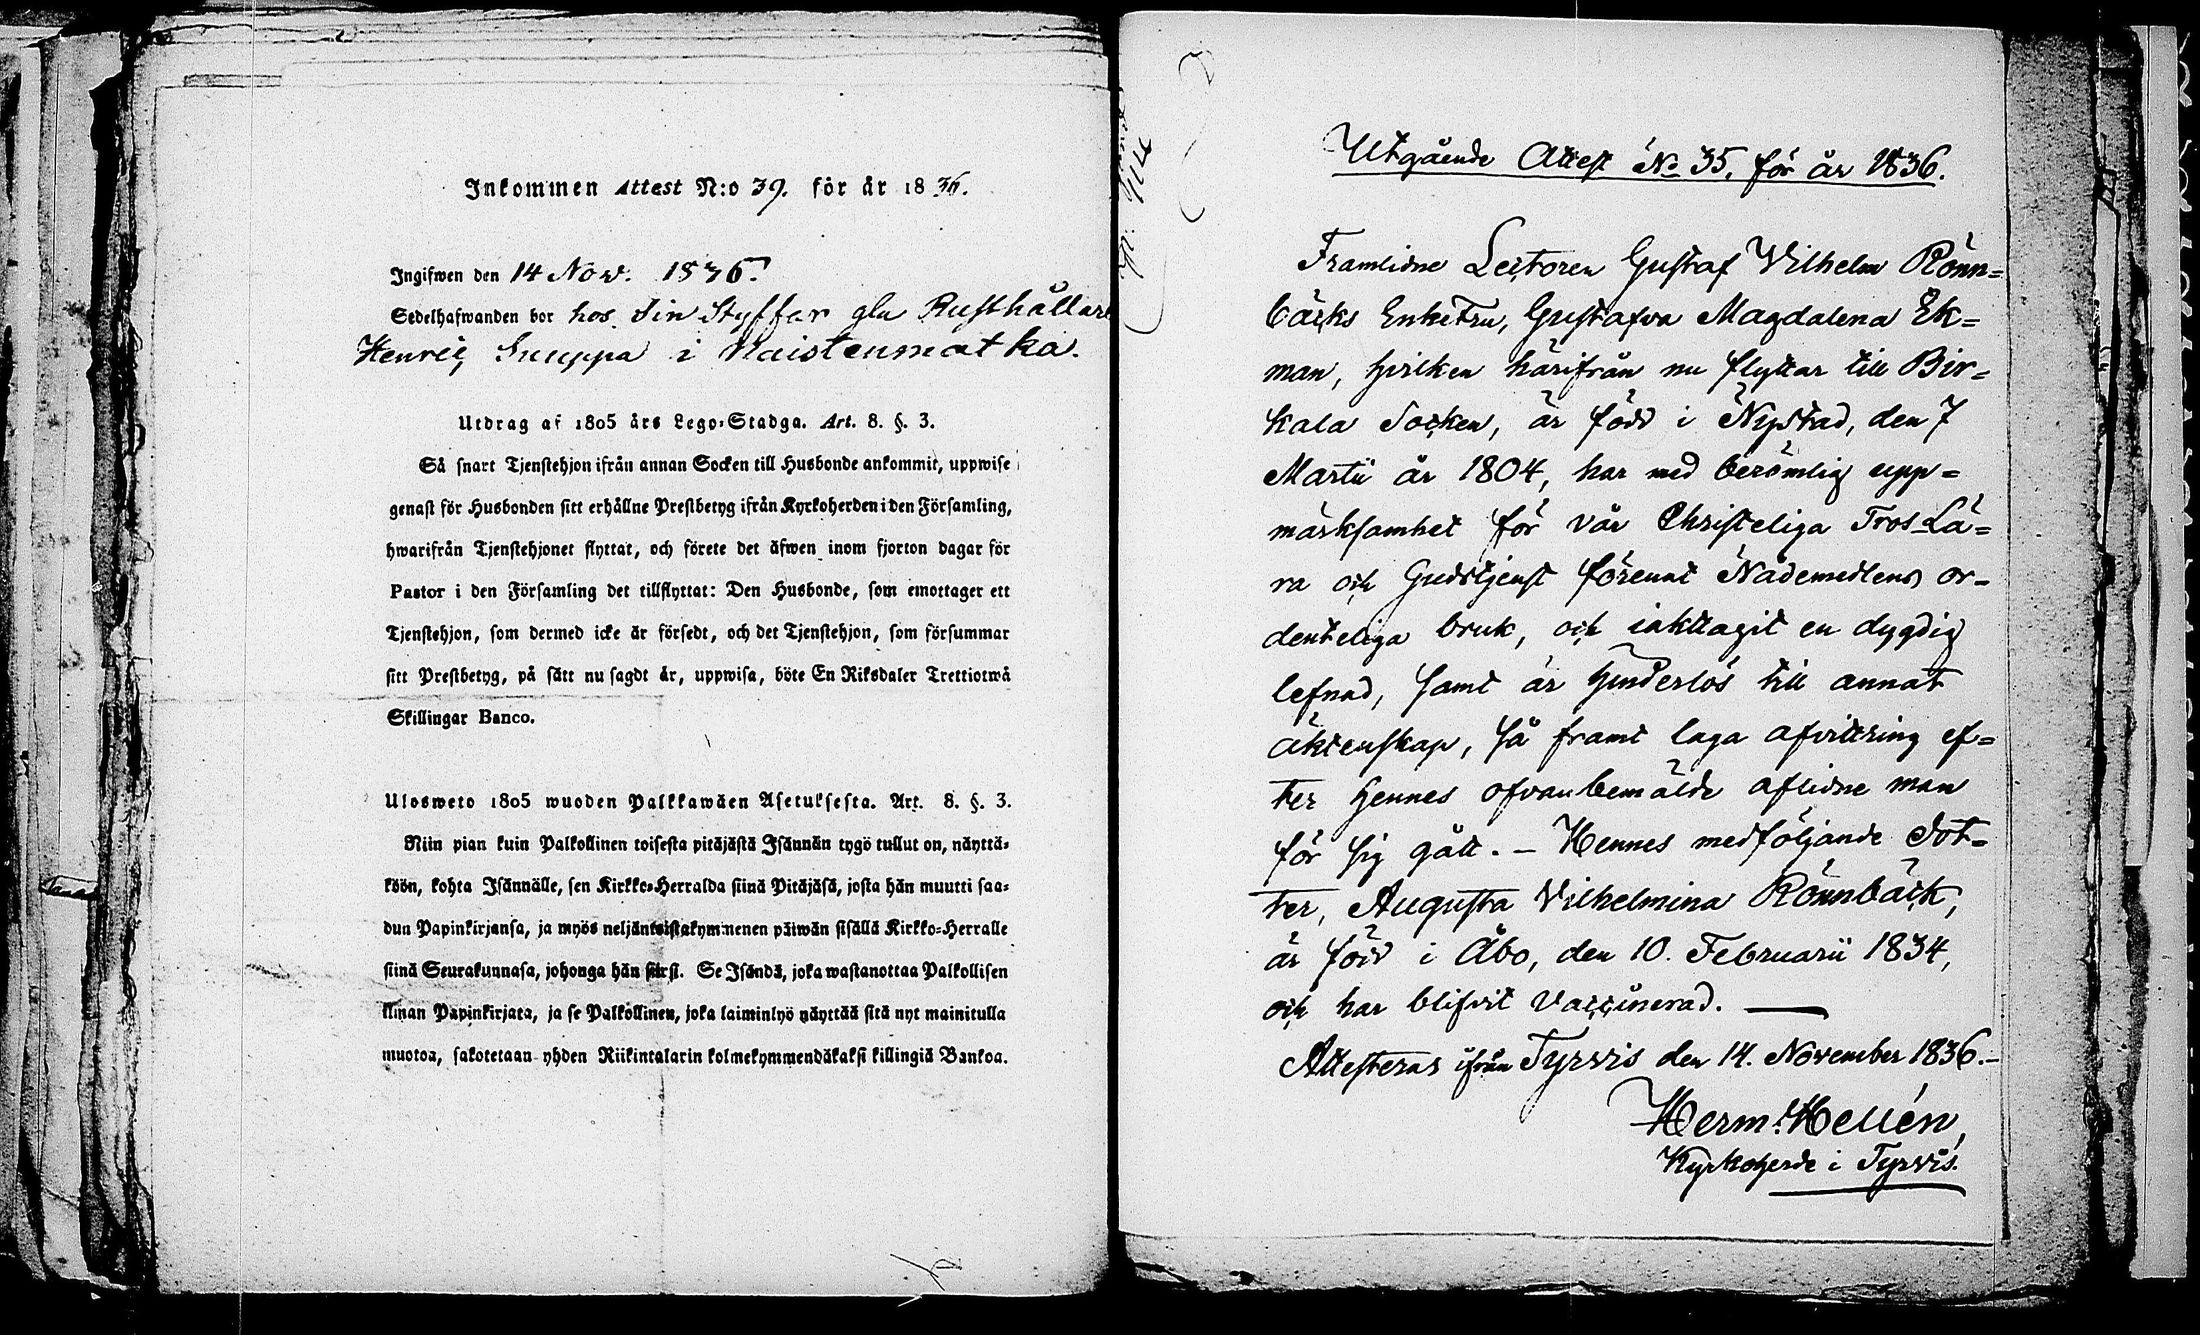 Inkommen Attest N:o 39. för år 1836.
Ingifwen den 14 Nov. 1836.
Sedelhafwanden bor hos sin Styffar gla Rusthållare
Henric Snuppa i Naistenmatka.
Utdrag af 1805 års Lego-Stadga. Art. 8. §. 3.
Så snart Tjenstehjon ifrån annan Socken till Husbonde ankommit, uppwise
genast för Husbonden sitt erhållne Prestbetyg ifrån Kyrkoherden i den Församling,
hwarifrån Tjenstehjonet flyttat, och förete det äfwen inom fjorton dagar för
Pastor i den Församling det tillflyttat: Den Husbonde, som emottager ett
Tjenstehjon, som dermed icke är försedt, och det Tjenstehjon, som försummar
sitt Prestbetyg, på sätt nu sagdt är, uppwisa, böte En Riksdaler Trettiotwå
Skillingar Banco.
Ulosweto 1805 wuoden Palkkawäen Asetuksesta. Art. 8. §. 3.
Niin pian kuin Palkollinen toisesta pitäjästä Isännän tygö tullut on, näyttä-
köön, kohta Isännälle, sen Kirkko-Herralda siinä Pitäjäsä, josta hän muutti saa-
dun Papinkirjansa, ja myös neljäntoistakymmenen päiwän sisällä Kirkko-Herralle
siinä Seurakunnasa, johonga hän siirsi. Se Isändä, joka wastanottaa Palkollisen
ilman Papinkirjata, ja se Palkollinen, joka laiminlyö näyttää sitä nyt mainitulla
muotoa, sakotetaan yhden Riikintalarin kolmekymmendäkaksi killingiä Bankoa.
Utgående Attest No 35. för år 1836.
Framlidne Lectoren Gustaf Vilhelm Rönn=
bäcks Enkefru, Gustafva Magdalena Ek=
man, hvilken härifrån nu flyttar till Bir=
kala Socken, är född i Nystad, den 7
Martii år 1804, har med berömlig upp=
märksamhet för vår Christeliga Tros-Lä=
ra och Gudstjenst förenat Nådemedlens or-
denteliga bruk, och iakttagit en dygdig
lefnad, samt är hinderlös till annat
äktenskap, så framt laga afvittring ef=
ter hennes ofvanbemälde aflidne man
för sig gått. – Hennes medföljande dot=
ter, Augusta Vilhelmina Rönnbäck,
är född i Åbo, den 10. Februarii 1834,
och har blifvit vaccinerad. —
Attesteras ifrån Tyrvis den 14. November 1836.–
Herm. Hellén,
Kyrkoherde i Tyrvis.